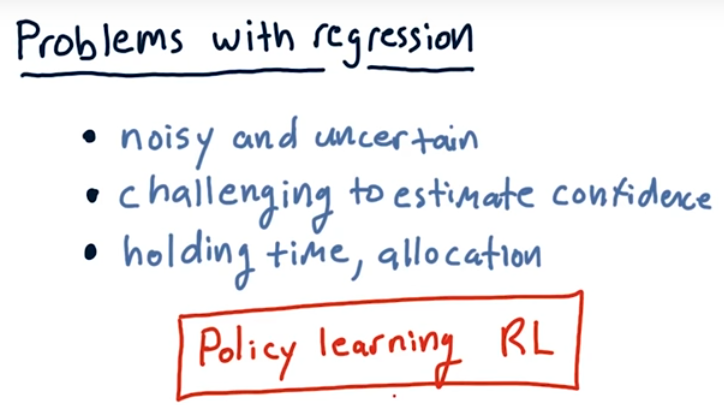 Problems with regression
• noisy and uncertain
• challenging to estimate confidence
• holding time, allocation
Policy learning RL